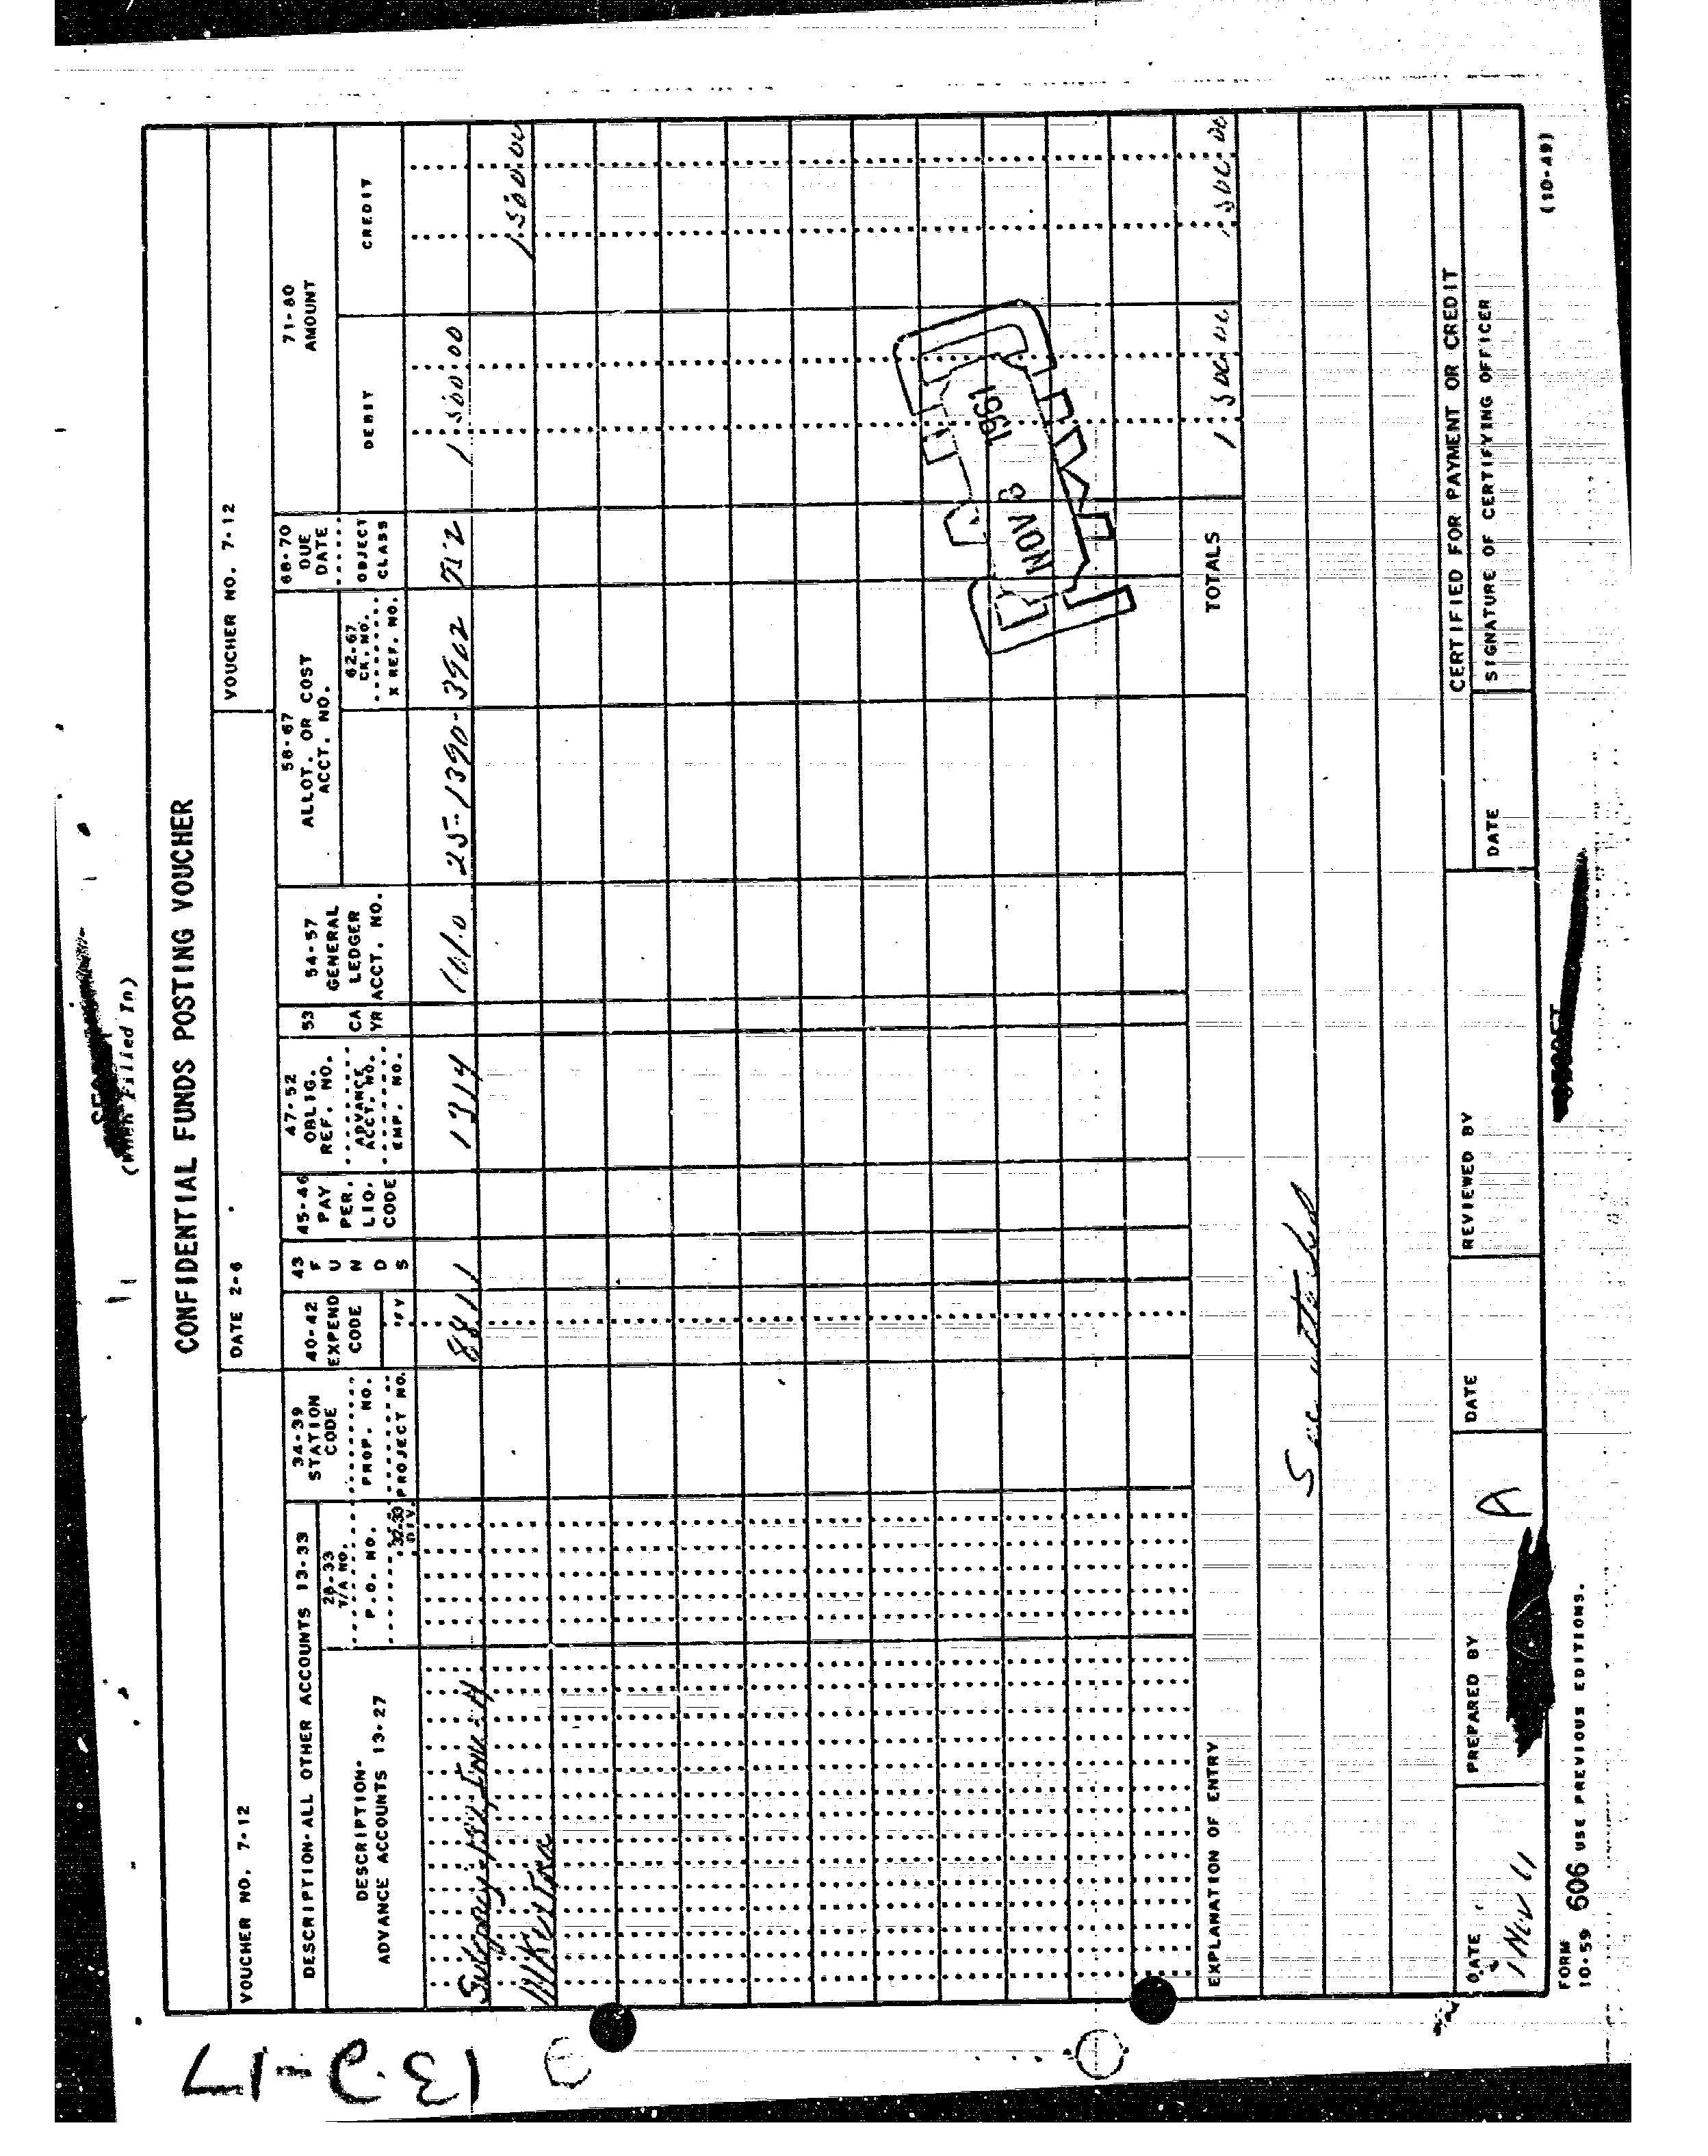 (When Filled In)
CONFIDENTIAL FUNDS POSTING VOUCHER
VOUCHER NO. 7-12
DATE 2-6
VOUCHER NO. 7-12
DESCRIPTION-ALL OTHER ACCOUNTS 13-33
DESCRIPTION-
ADVANCE ACCOUNTS 13-27
28-33
T/A NO.
P.O. NO.
32-33
DIV.
34-39
STATION
CODE
PROP. NO.
PROJECT NO.
40-42
EXPEND
CODE
FY
43
F
U
N
D
S
45-46
PAY
PER.
LIQ.
CODE
47-52
OBLIG.
REF. NO.
ADVANCE
ACCT. NO.
EMP. NO.
53
CA
YR
54-57
GENERAL
LEDGER
ACCT. NO.
58-67
ALLOT. OR COST
ACCT. NO.
62-67
CK. NO.
X REF. NO.
68-70
DUE
DATE
OBJECT
CLASS
71-80
AMOUNT
DEBIT
CREDIT
881 1 1314 601.0 25-1390-3902 912 1 500.00
1,500.00
NOV 8 1961
TOTALS 1 500.00 1,500.00
EXPLANATION OF ENTRY
See attached
CERTIFIED FOR PAYMENT OR CREDIT
DATE
1 Nov 61
PREPARED BY
A
DATE
REVIEWED BY
DATE
SIGNATURE OF CERTIFYING OFFICER
FORM
10-59 606 USE PREVIOUS EDITIONS.
(10-49)